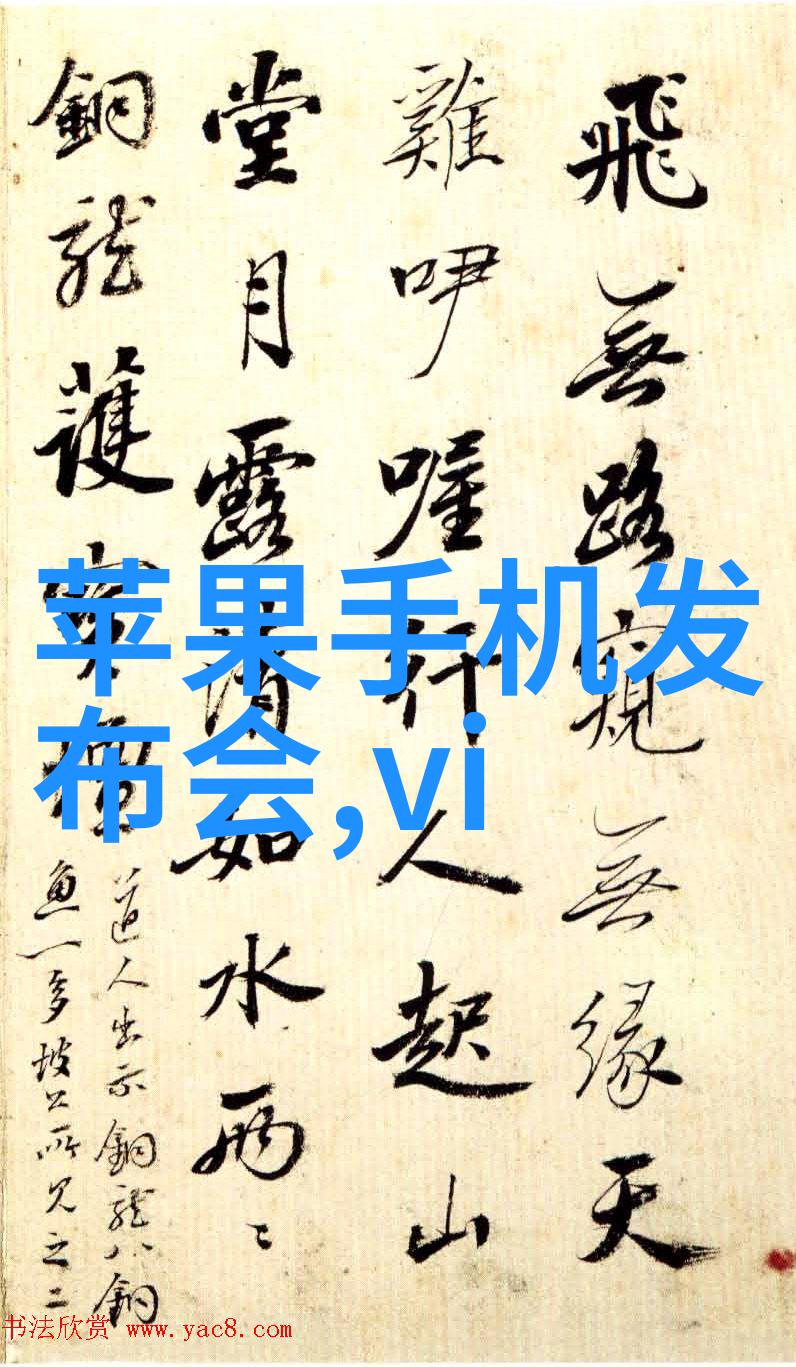 飛無路窺無緣天
雞咿喔行人起山
堂月露清如水兩〻
銅龍護
道人出示銅龍八銅
魚一多坡公所見之二
苹果手机发
布会,vi
书法欣赏 www.yac8.com